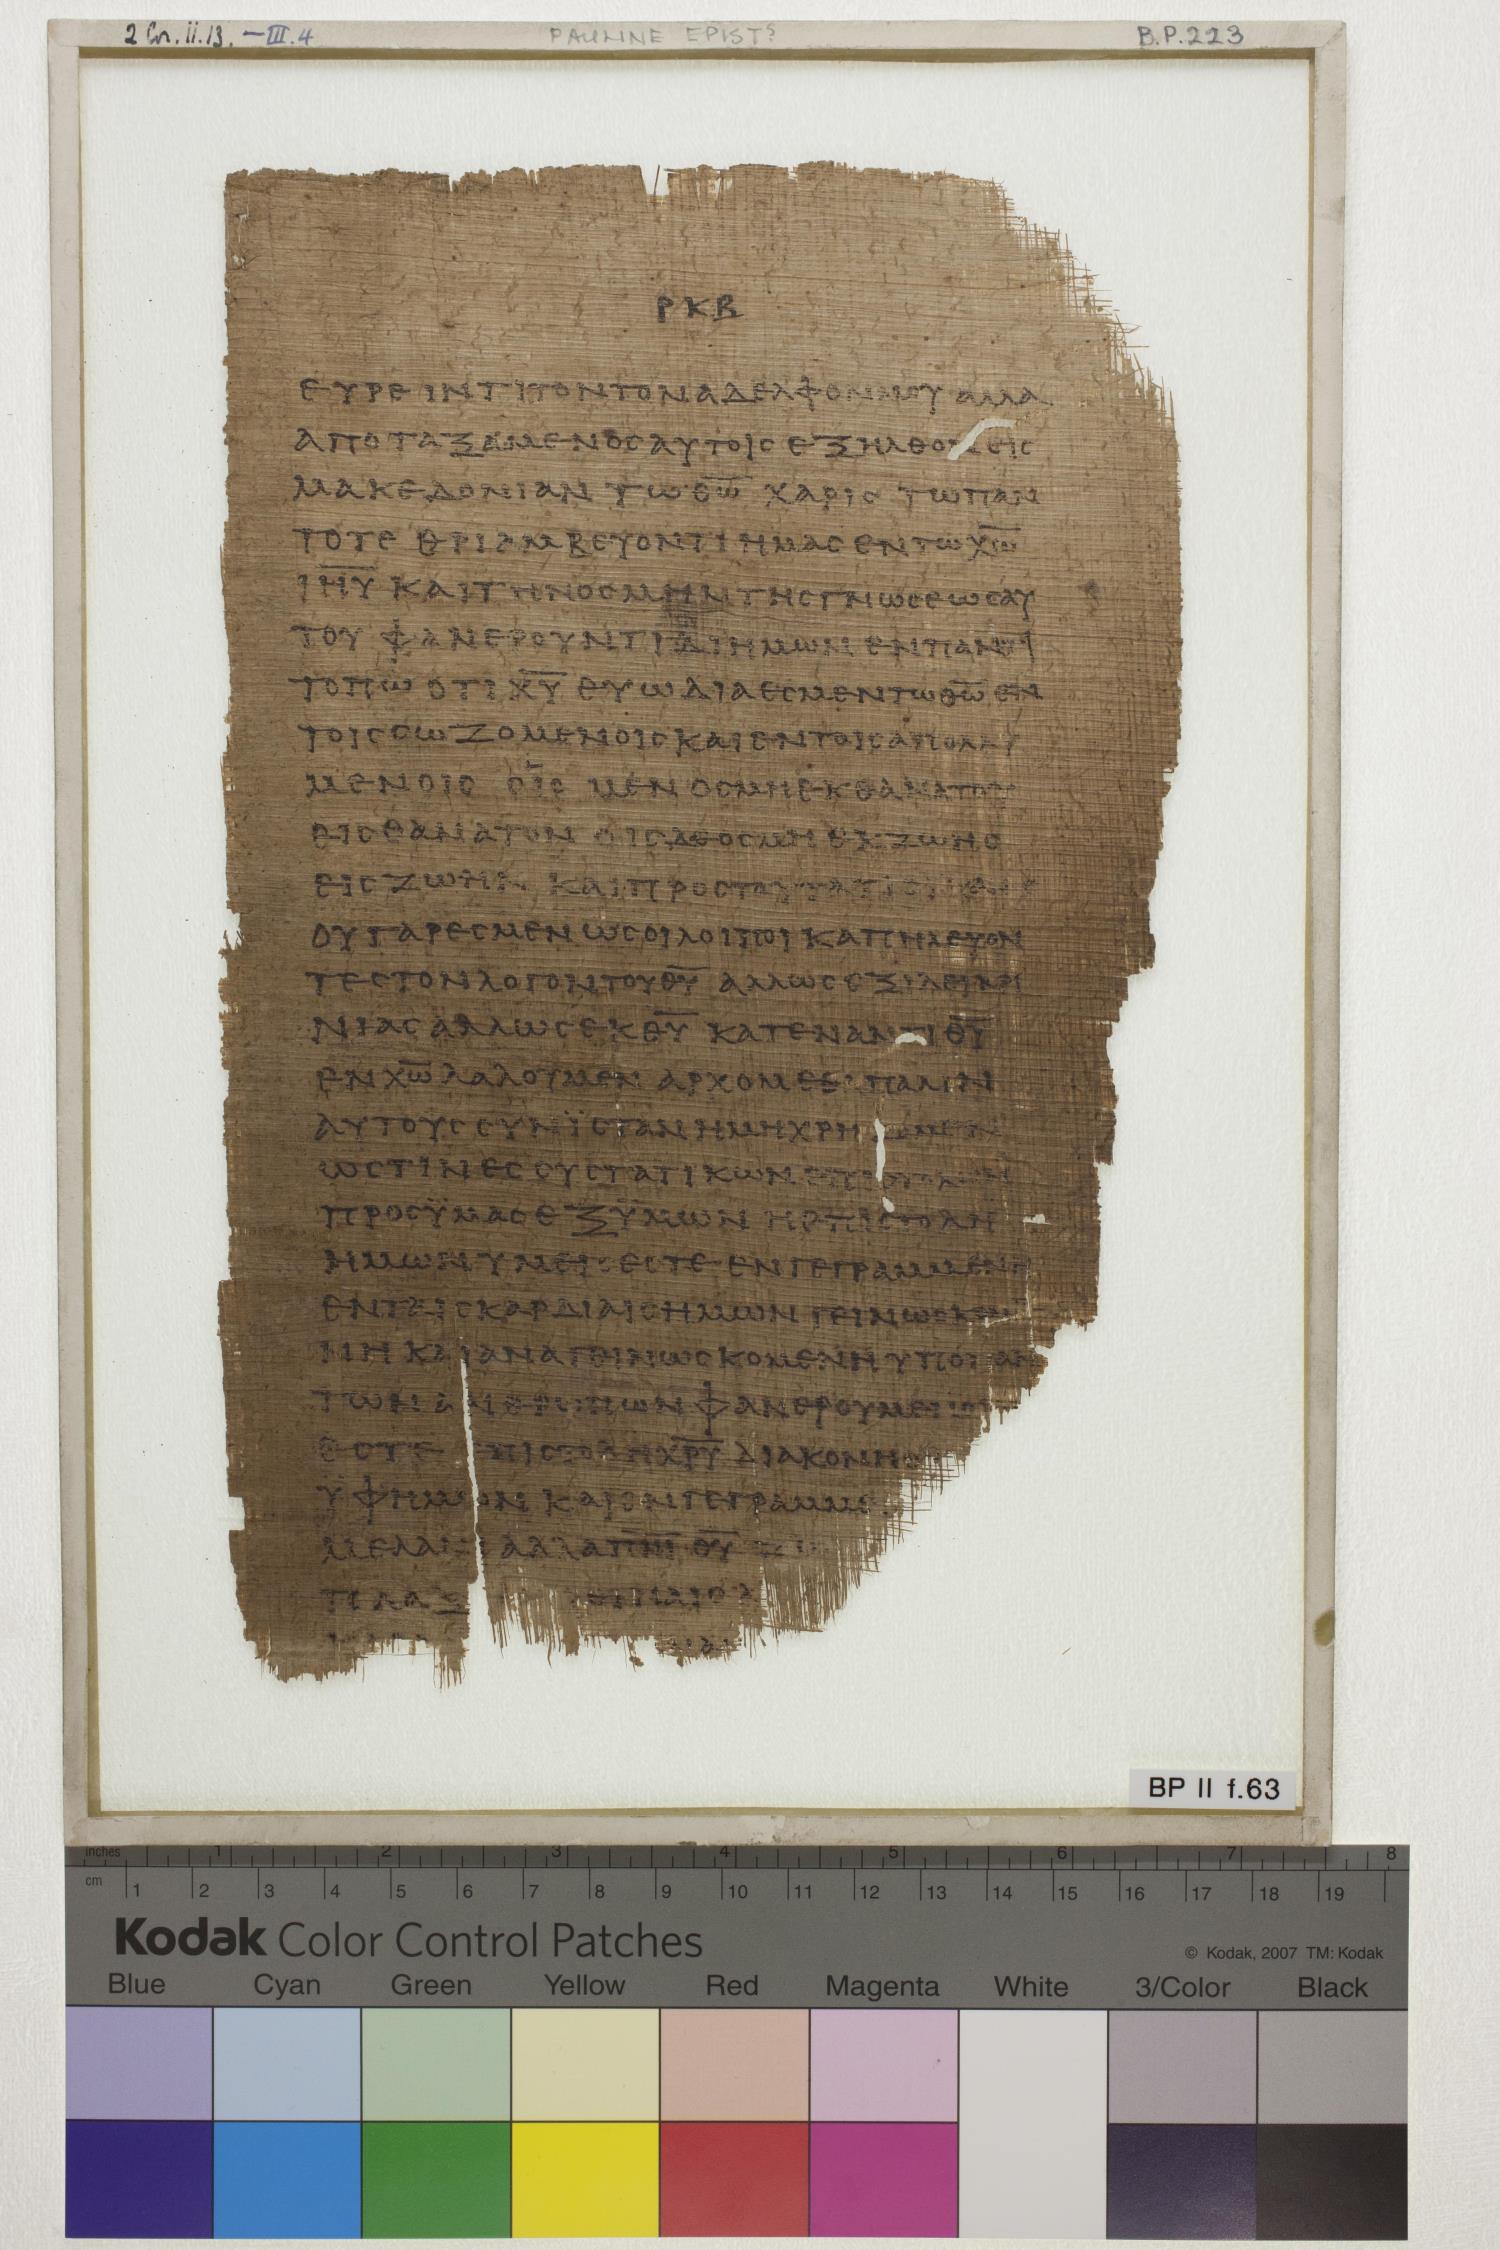 2 Cor. ii. 13. – III. 4
PAULINE EPIST?
B.P. 223
ΡΚΒ
ΕΥΡΕΙΝΤΙΤΟΝΤΟΝΑΔΕΛΦΟΝΜΟΥ ΑΛΛΑ
ΑΠΟΤΑΞΑΜΕΝΟΣΑΥΤΟΙΣ ΕΞΗΛΘΟΝΕΙΣ
ΜΑΚΕΔΟΝΙΑΝ ΤΩΘΩ̅ ΧΑΡΙΣ ΤΩΠΑΝ
ΤΟΤΕ ΘΡΙΑΜΒΕΥΟΝΤΙΗΜΑΣΕΝΤΩΧΩ̅
ΙΗ̅Υ̅ ΚΑΙΤΗΝΟΣΜΗΝΤΗΣΓΝΩΣΕΩΣΑΥ
ΤΟΥ ΦΑΝΕΡΟΥΝΤΙΔΙΗΜΩΝ ΕΝΠΑΝΤΙ
ΤΟΠΩ ΟΤΙΧΥ̅ ΕΥΩΔΙΑΕΣΜΕΝΤΩΘΩ̅ ΕΝ
ΤΟΙΣΣΩΖΟΜΕΝΟΙΣΚΑΙΕΝΤΟΙΣΑΠΟΛΛΥ
ΜΕΝΟΙΣ ΟΙΣ ΜΕΝ ΟΣΜΗΕΚΘΑΝΑΤΟΥ
ΕΙΣΘΑΝΑΤΟΝ ΟΙΣΔΕΟΣΜΗ ΕΚΖΩΗΣ
ΕΙΣΖΩΗΝ ΚΑΙΠΡΟΣΤΑΥΤΑΤΙΣ
ΟΥΓΑΡΕΣΜΕΝ ΩΣΟΙΛΟΙΠΟΙ ΚΑΠΗΛΕΥΟΝ
ΤΕΣΤΟΝΛΟΓΟΝΤΟΥΘΥ̅ ΑΛΛΩΣΕΞΙΛΕΙΚΡΙ
ΝΙΑΣ ΑΛΛΩΣΕΚΘΥ̅ ΚΑΤΕΝΑΝΤΙΘΥ̅
ΕΝΧΩ̅ ΛΑΛΟΥΜΕΝ ΑΡΧΟΜΕΘΑ ΠΑΛΙΝ
ΑΥΤΟΥΣΣΥΝΪΣΤΑΝΗΜΗΧΡΗΖΟΜΕΝ
ΩΣΤΙΝΕΣ ΣΥΣΤΑΤΙΚΩΝ ΕΠΙΣΤΟΛΩΝ
ΠΡΟΣΫΜΑΣΕΞΫΜΩΝ ΗΕΠΙΣΤΟΛΗ
ΗΜΩΝΥΜΕΙΣΕΣΤΕ ΕΝΓΕΓΡΑΜΜΕΝΗ
ΕΝΤΑΙΣΚΑΡΔΙΑΙΣΗΜΩΝ ΓΕΙΝΩΣΚΟΜΕ
ΝΗ ΚΑΙΑΝΑΓΕΙΝΩΣΚΟΜΕΝΗ ΥΠΟΠΑΝ
ΤΩΝΑΝΘΡΩΠΩΝ ΦΑΝΕΡΟΥΜΕΝΟΙ
ΕΣΤΕ ΕΠΙΣΤΟΛΗΧΡΥ̅ ΔΙΑΚΟΝΗ
ΫΦΗΜΩΝ ΚΑΙΕΝΓΕΓΡΑΜΜΕ
ΜΕΛΑΝΙ ΑΛΛΑΠΝΙ̅ ΘΥ̅
ΠΛΑΞ
BP II f.63
inches 1 2 3 4 5 6 7 8
cm 1 2 3 4 5 6 7 8 9 10 11 12 13 14 15 16 17 18 19
Kodak Color Control Patches
© Kodak, 2007 TM: Kodak
Blue Cyan Green Yellow Red Magenta White 3/Color Black